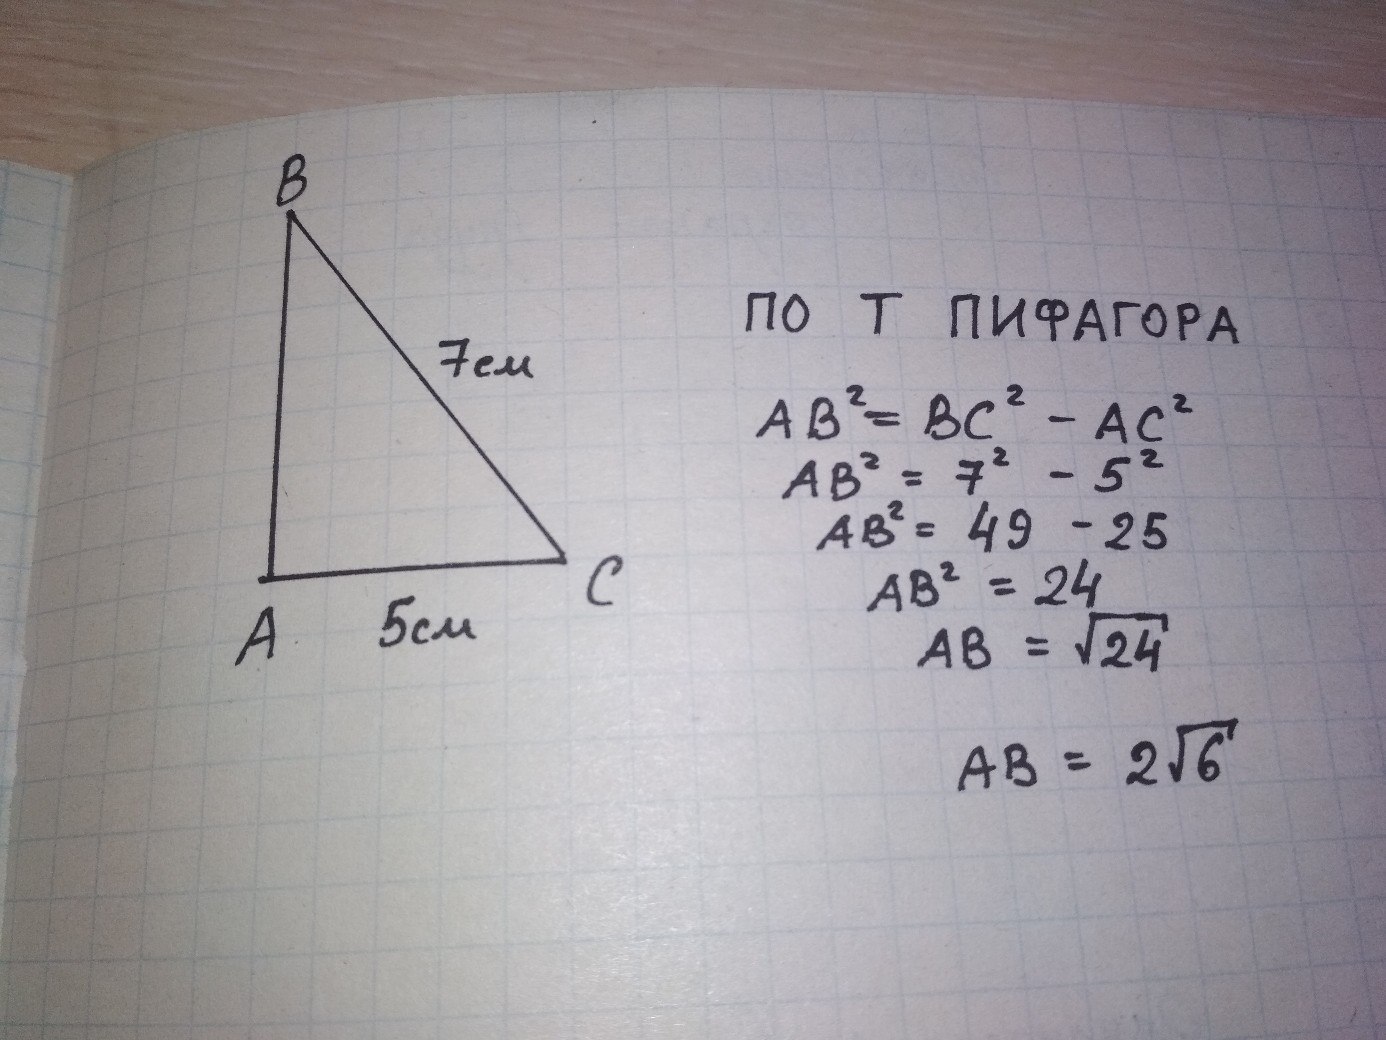 B
7см
A
5см
C
ПО Т ПИФАГОРА
AB² = BC² - AC²
AB² = 7² - 5²
AB² = 49 - 25
AB² = 24
AB = √24
AB = 2√6